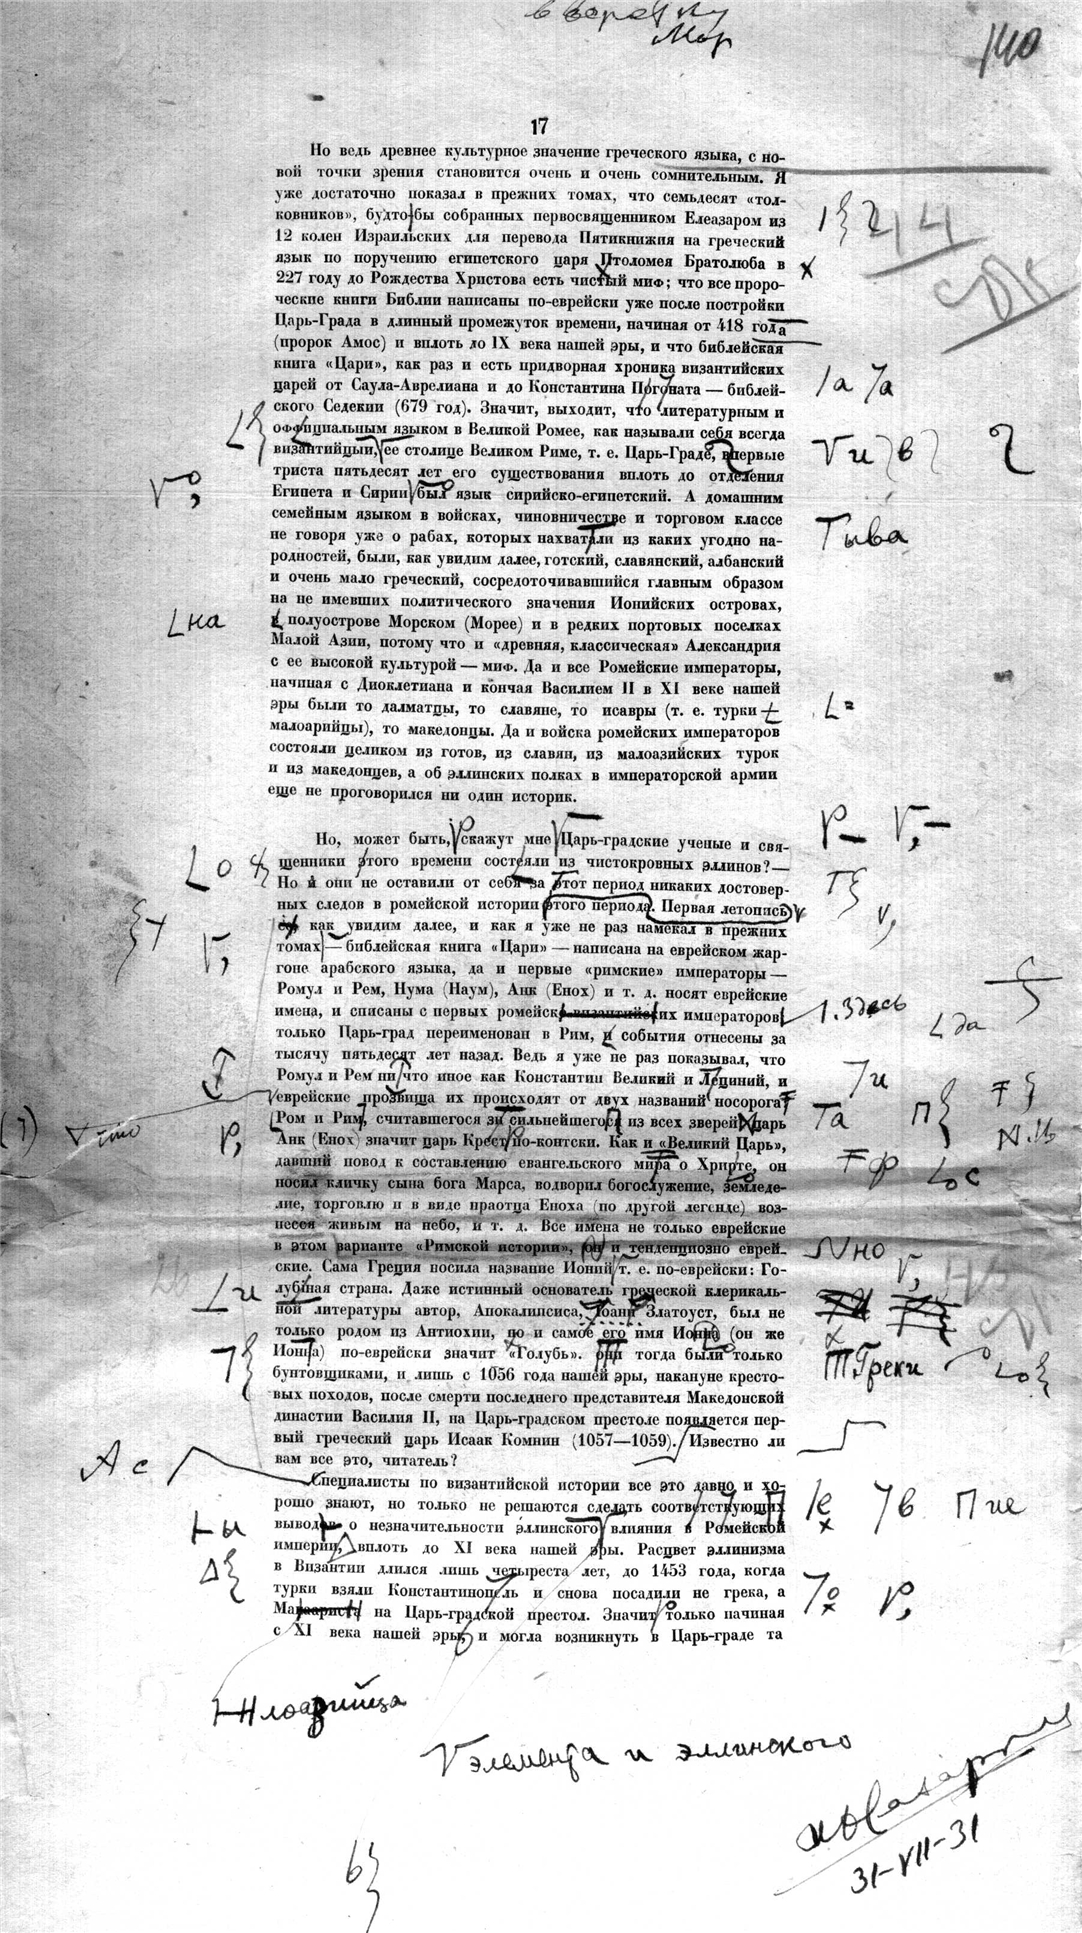 в верстку
Мор
140
17
Но ведь древнее культурное значение греческого языка, с но-
вой точки зрения становится очень и очень сомнительным. Я
уже достаточно показал в прежних томах, что семьдесят «тол-
ковников», будто бы собранных первосвященником Елеазаром из
12 колен Израильских для перевода Пятикнижия на греческий
язык по поручению египетского царя Птоломея Братолюба в
227 году до Рождества Христова есть чистый миф; что все проро-
ческие книги Библии написаны по-еврейски уже после постройки
Царь-Града в длинный промежуток времени, начиная от 418 года
(пророк Амос) и вплоть до IX века нашей эры, и что библейская
книга «Цари», как раз и есть придворная хроника византийских
царей от Саула-Аврелиана и до Константина Погоната — библей-
ского Седекии (679 год). Значит, выходит, что литературным и
оффициальным языком в Великой Ромее, как называли себя всегда
византийцы, ее столице Великом Риме, т. е. Царь-Граде, впервые
триста пятьдесят лет его существования вплоть до отделения
Египета и Сирии был язык сирийско-египетский. А домашним
семейным языком в войсках, чиновничестве и торговом классе
не говоря уже о рабах, которых нахватали из каких угодно на-
родностей, были, как увидим далее, готский, славянский, албанский
и очень мало греческий, сосредоточивавшийся главным образом
на не имевших политического значения Ионийских островах,
и полуострове Морском (Морее) и в редких портовых поселках
Малой Азии, потому что и «древняя, классическая» Александрия
с ее высокой культурой — миф. Да и все Ромейские императоры,
начиная с Диоклетиана и кончая Василием II в XI веке нашей
эры были то далматцы, то славяне, то исавры (т. е. турки
малоарийцы), то македонцы. Да и войска ромейских императоров
состояли целиком из готов, из славян, из малоазийских турок
и из македонцев, а об эллинских полках в императорской армии
еще не проговорился ни один историк.
Но, может быть, скажут мне Царь-градские ученые и свя-
щенники этого времени состояли из чистокровных эллинов?—
Но и они не оставили от себя за этот период никаких достовер-
ных следов в ромейской истории этого периода. Первая летопись
как увидим далее, и как я уже не раз намекал в прежних
томах — библейская книга «Цари» — написана на еврейском жар-
гоне арабского языка, да и первые «римские» императоры —
Ромул и Рем, Нума (Наум), Анк (Енох) и т. д. носят еврейские
имена, и списаны с первых ромейско-византийских императоров
только Царь-град переименован в Рим, и события отнесены за
тысячу пятьдесят лет назад. Ведь я уже не раз показывал, что
Ромул и Рем ничто иное как Константин Великий и Лециний, и
еврейские прозвища их происходят от двух названий носорога
Ром и Рим, считавшегося за сильнейшего из всех зверей царь
Анк (Енох) значит царь Крест по-коптски. Как и «Великий Царь»,
давший повод к составлению евангельского мира о Хрирте, он
носил кличку сына бога Марса, водворил богослужение, земледе-
лие, торговлю и в виде праотца Еноха (по другой легенде) воз-
несся живым на небо, и т. д. Все имена не только еврейские
в этом варианте «Римской истории», он и тенденциозно еврей-
ские. Сама Греция носила название Ионий т. е. по-еврейски: Го-
лубиная страна. Даже истинный основатель греческой клерикаль-
ной литературы автор, Апокалипсиса, Иоанн Златоуст, был не
только родом из Антиохии, но и самое его имя Иоанна (он же
Иониа) по-еврейски значит «Голубь». они тогда были только
бунтовщиками, и лишь с 1056 года нашей эры, накануне кресто-
вых походов, после смерти последнего представителя Македонской
династии Василия II, на Царь-градском престоле появляется пер-
вый греческий царь Исаак Комнин (1057—1059). Известно ли
вам все это, читатель?
Специалисты по византийской истории все это давно и хо-
рошо знают, но только не решаются сделать соответствующих
выводов о незначительности эллинского влияния в Ромейской
империи, вплоть до XI века нашей эры. Расцвет эллинизма
в Византии длился лишь четыреста лет, до 1453 года, когда
турки взяли Константинополь и снова посадили не грека, а
на Царь-градской престол. Значит только начиная
с XI века нашей эры, и могла возникнуть в Царь-граде та
элемента и эллинского
31-VII-31